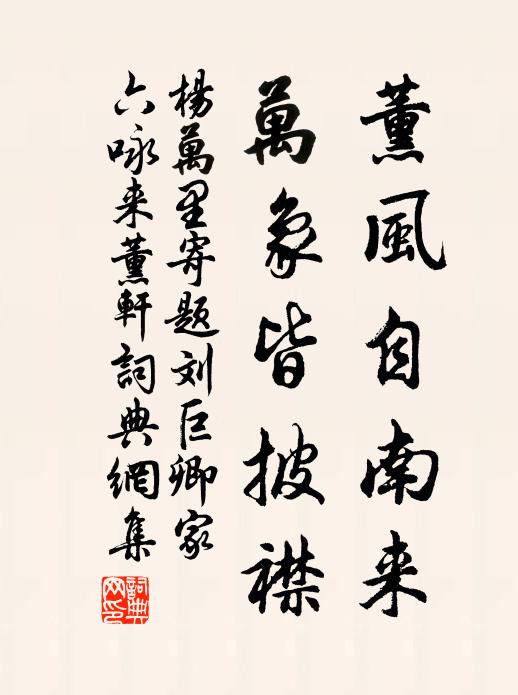 薰風自南来
萬象皆披襟
楊萬里寄题刘巨卿家
六咏来薰軒詞典網集
詞典网印